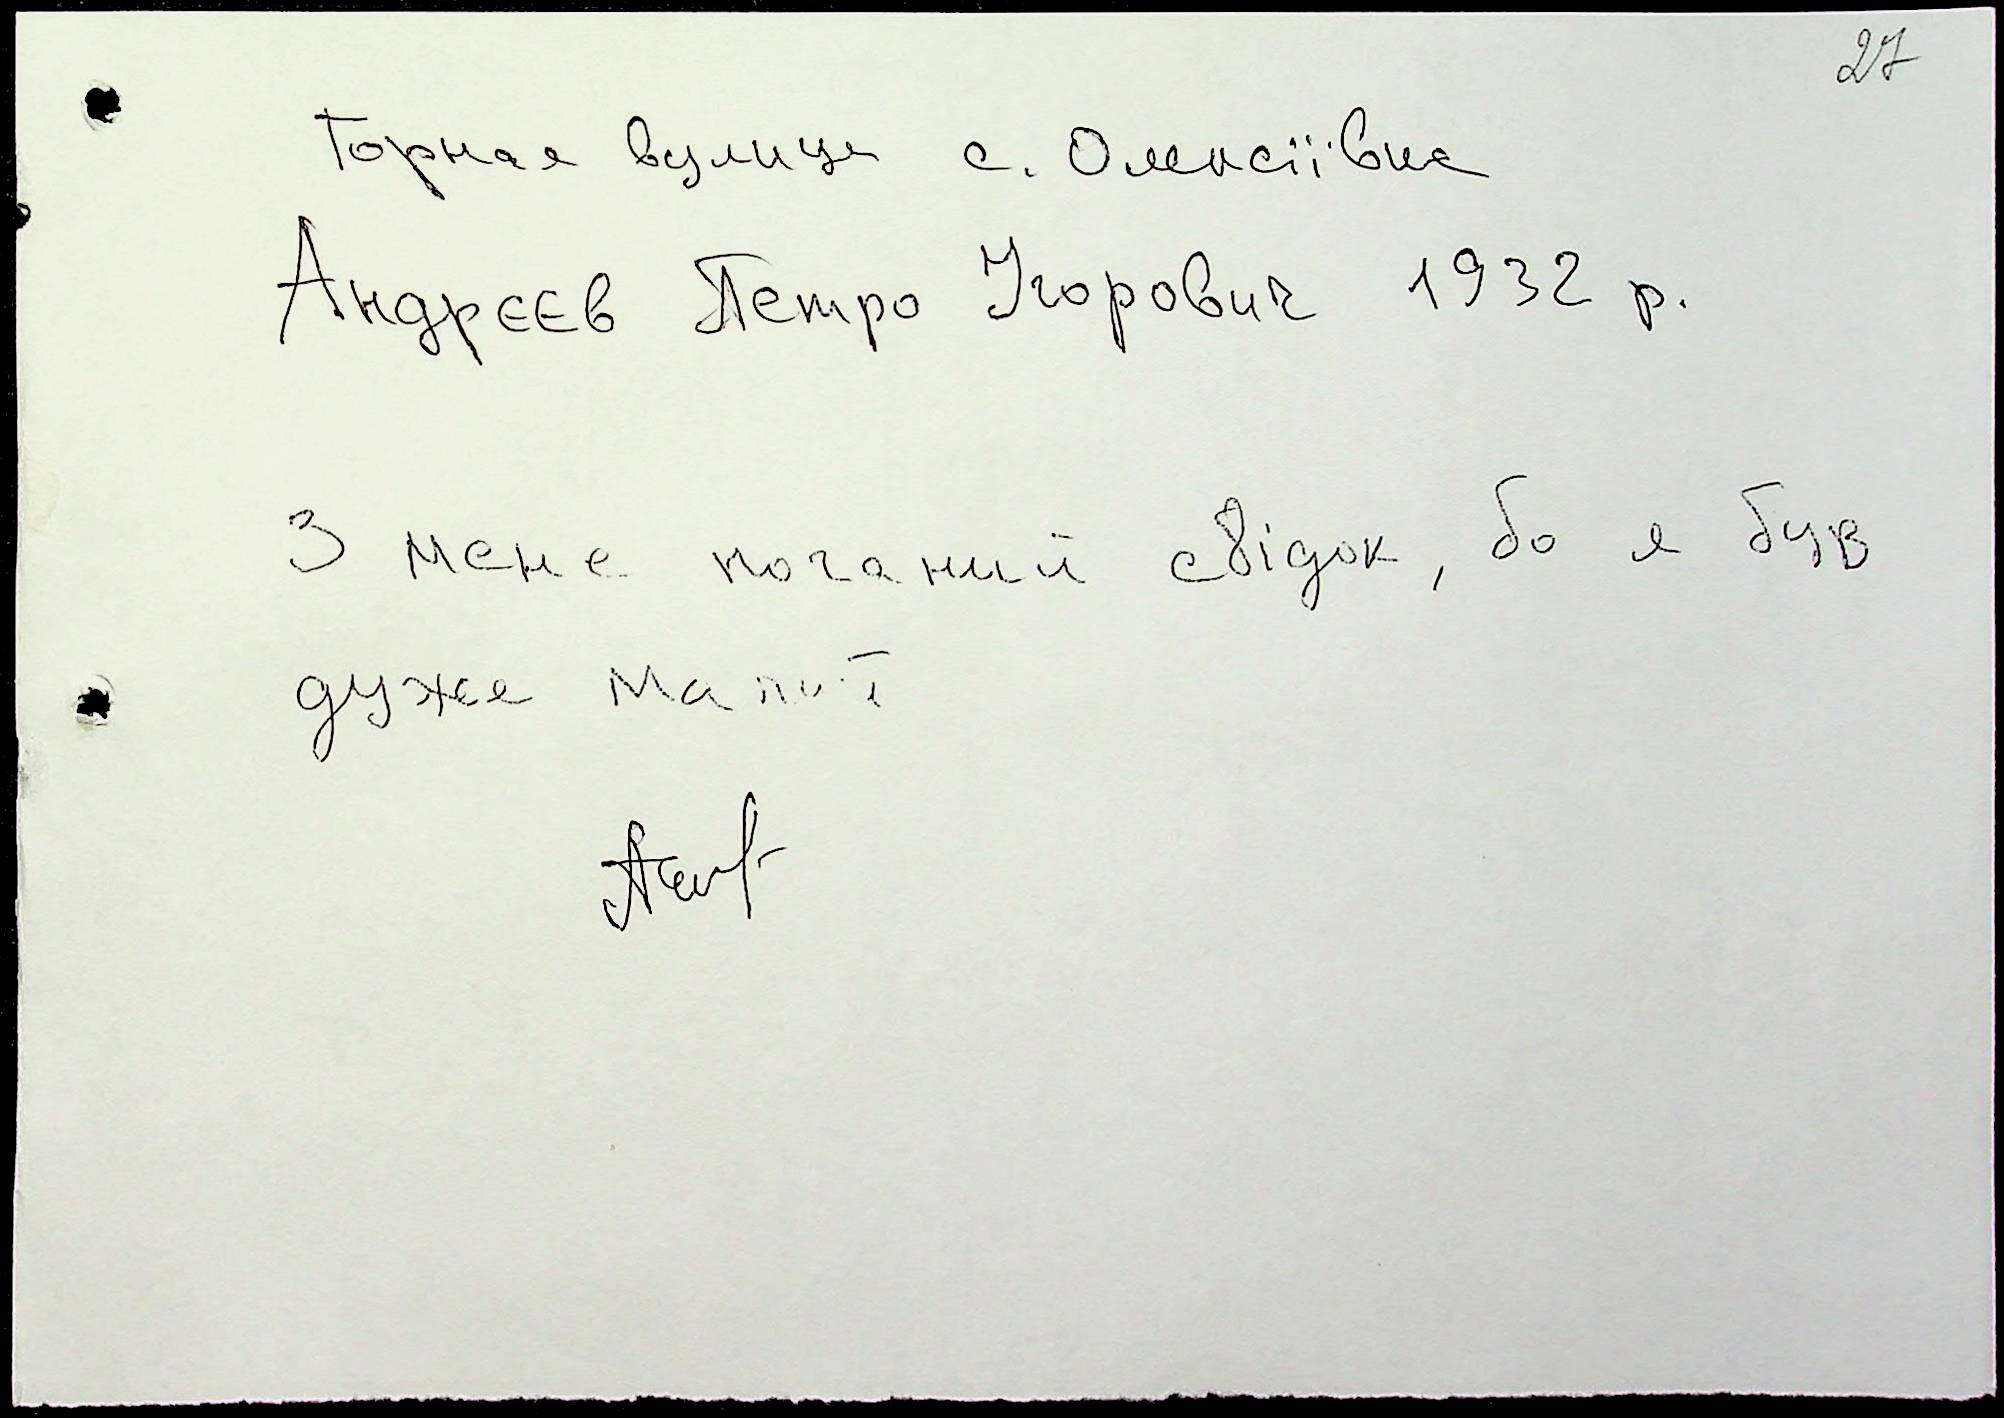 27
Горная вулиця с. Олексіївка
Андрєєв Петро Ігорович 1932 р.
З мене поганий свідок, бо я був
дуже малий